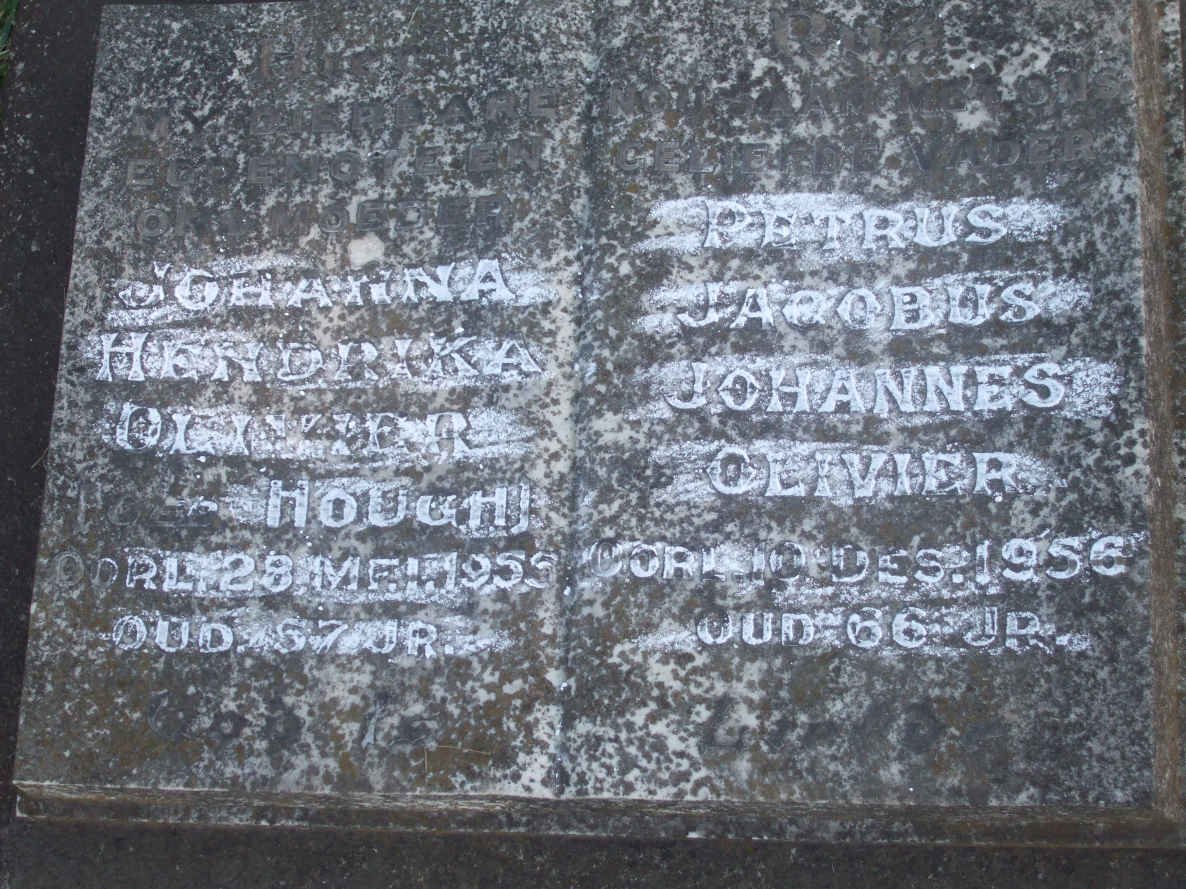 MY DIERBARE
EGGENOTE EN
ONS MOEDER
JOHANNA
HENDRIKA
OLIVIER
HOUGH]
OORL. 28 MEI. 195
OUD. 57 JR.
NOU GAAN MET ONS
GELIEFDE VADER
PETRUS
JACOBUS
JOHANNES
OLIVIER
OORL. 10 DES. 1956
OUD 66 JR.